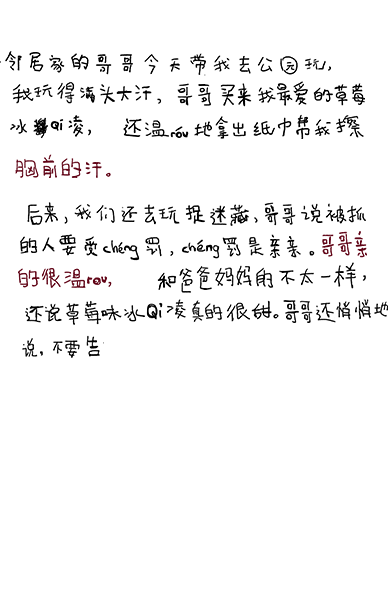 邻居家的哥哥今天带我去公园玩,
我玩得满头大汗,哥哥买来我最爱的草莓
冰Qi凌, 还温róu地拿出纸巾帮我擦
胸前的汗。
后来,我们还去玩捉迷藏,哥哥说被抓
的人要受chéng罚,chéng罚是亲亲。哥哥亲
的很温rou, 和爸爸妈妈的不太一样,
还说草莓味冰Qi凌真的很甜。哥哥还悄悄地
说,不要告